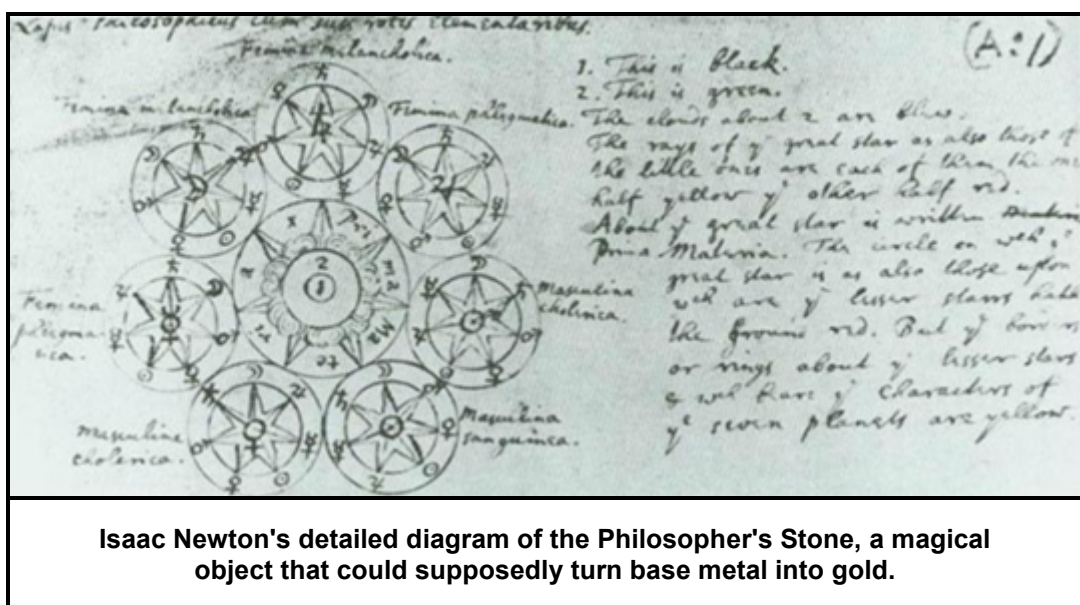 Lapis Philosophicus cum suis rotis elementaribus.
Femina melancholica.
Femina melancholica
Femina phlegmatica.
Femina
phlegma-
tica.
Masculina
cholerica.
Masculina
cholerica.
Masculina
sanguinea.
2
1
(A:1)
1. This is black.
2. This is green.
The clouds about 2 are blue.
The rays of yͤ great star as also those of
the little ones are each of them the one
half yellow yͤ other half red.
About yͤ great star is written
Prima Materia. The circle on wch yͤ
great star is as also those upon
wch are yͤ lesser starrs hath
the ground red. But yͤ borders
or rings about yͤ lesser stars
& wch bear yͤ characters of
yͤ seven planets are yellow.
Isaac Newton's detailed diagram of the Philosopher's Stone, a magical
object that could supposedly turn base metal into gold.